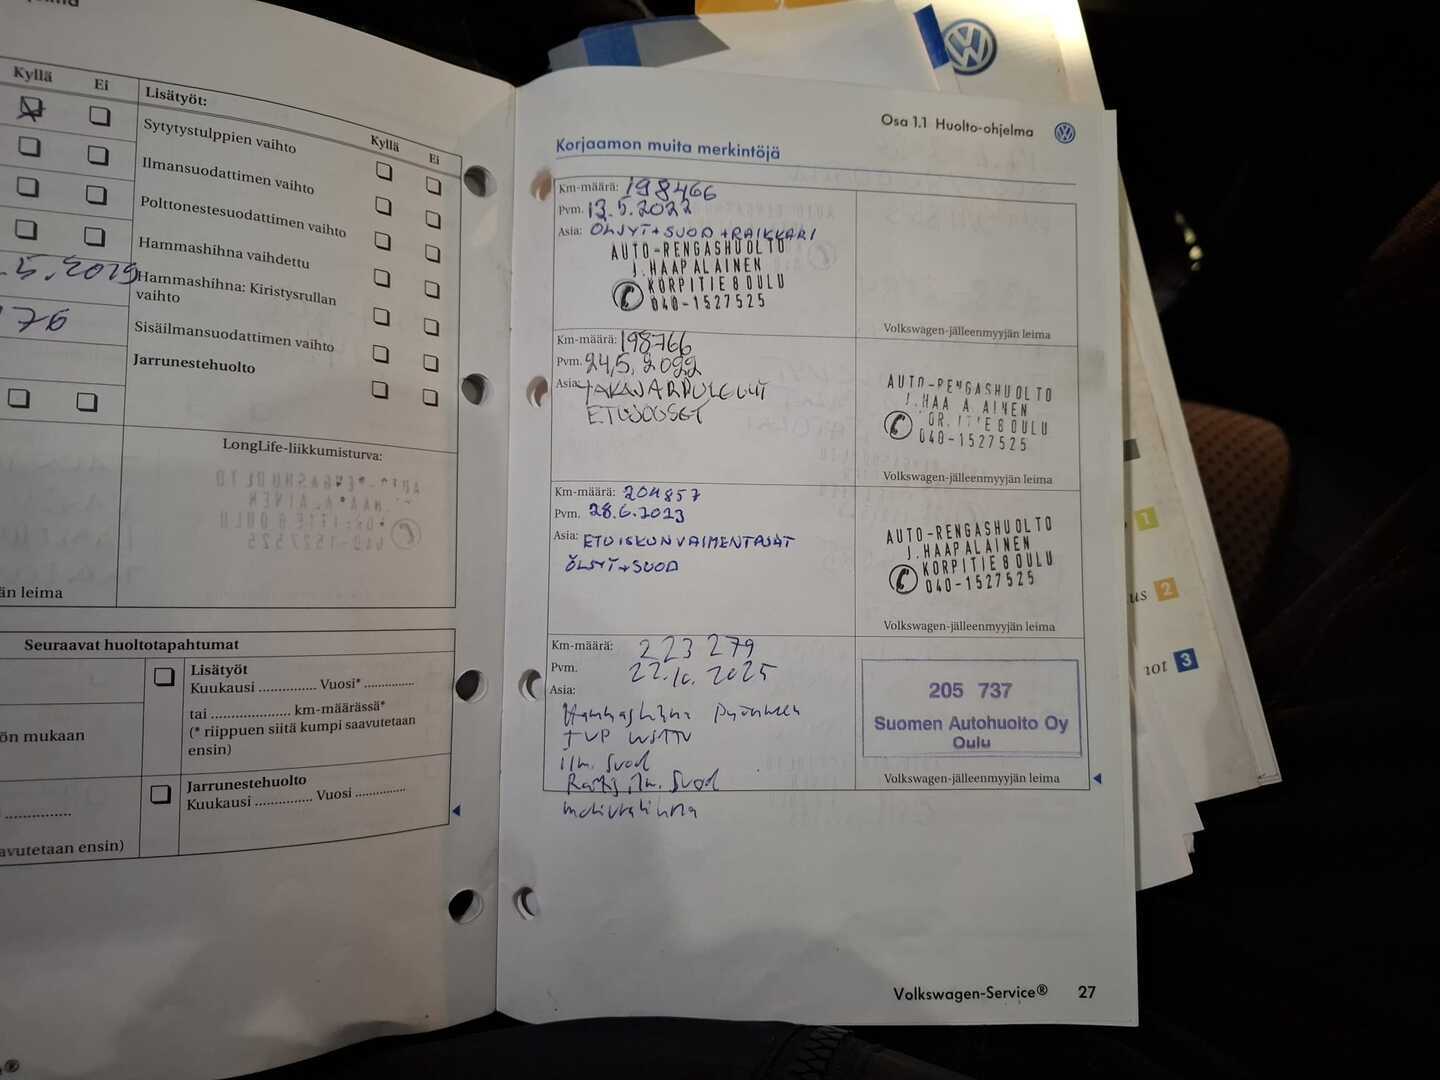 Kyllä Ei
Lisätyöt:
Kyllä Ei
Sytytystulppien vaihto
Ilmansuodattimen vaihto
Polttonestesuodattimen vaihto
Hammashihna vaihdettu
Hammashihna: Kiristysrullan
vaihto
Sisäilmansuodattimen vaihto
Jarrunestehuolto
5.2019
76
LongLife-liikkumisturva:
än leima
Seuraavat huoltotapahtumat
Lisätyöt
Kuukausi .............. Vuosi* .............
tai .................... km-määrässä*
(* riippuen siitä kumpi saavutetaan
ensin)
ön mukaan
Jarrunestehuolto
Kuukausi .............. Vuosi .............
avutetaan ensin)
Osa 1.1 Huolto-ohjelma
Korjaamon muita merkintöjä
Km-määrä: 198466
Pvm. 13.5.2022
Asia: ÖLJYT+SUOD+RAIKKARI
AUTO-RENGASHUOLTO
J.HAAPALAINEN
KORPITIE 8 OULU
040-1527525
Volkswagen-jälleenmyyjän leima
Km-määrä: 198766
Pvm. 24,5, 2022
Asia:
ETUJOUSET
AUTO-RENGASHUOLTO
J.HAA A.AINEN
8 OULU
040-1527525
Volkswagen-jälleenmyyjän leima
Km-määrä: 204857
Pvm. 28.6.2023
Asia: ETUISKUNVAIMENTAJAT
ÖLJYT+SUOD
AUTO-RENGASHUOLTO
J.HAAPALAINEN
KORPITIE 8 OULU
040-1527525
Volkswagen-jälleenmyyjän leima
Km-määrä: 223 279
Pvm. 22.10.2025
Asia:
Hammashihna
ilm. suod
Raitis ilm. suod
205 737
Suomen Autohuolto Oy
Oulu
Volkswagen-jälleenmyyjän leima
Volkswagen-Service® 27
1
us 2
not 3